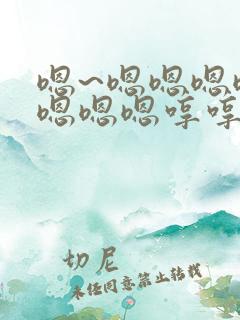 嗯~嗯嗯嗯
嗯嗯嗯哼哼
切尼
未经同意禁止转载